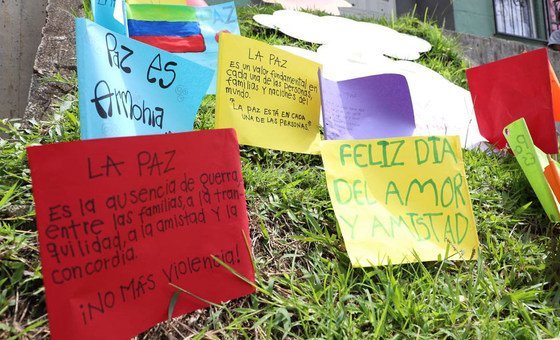 Paz es
Armonia
LA PAZ
Es un valor fundamental en
cada una de las personas,
familias y naciones del
mundo.
"LA PAZ ESTÁ EN CADA
UNA DE LAS PERSONAS"
LA PAZ
Es la ausencia de guerra
entre las familias, a la tran
quilidad, a la amistad y la
concordia.
¡NO MÁS violencia!
FELIZ DIA
DEL AMOR
Y AMISTAD